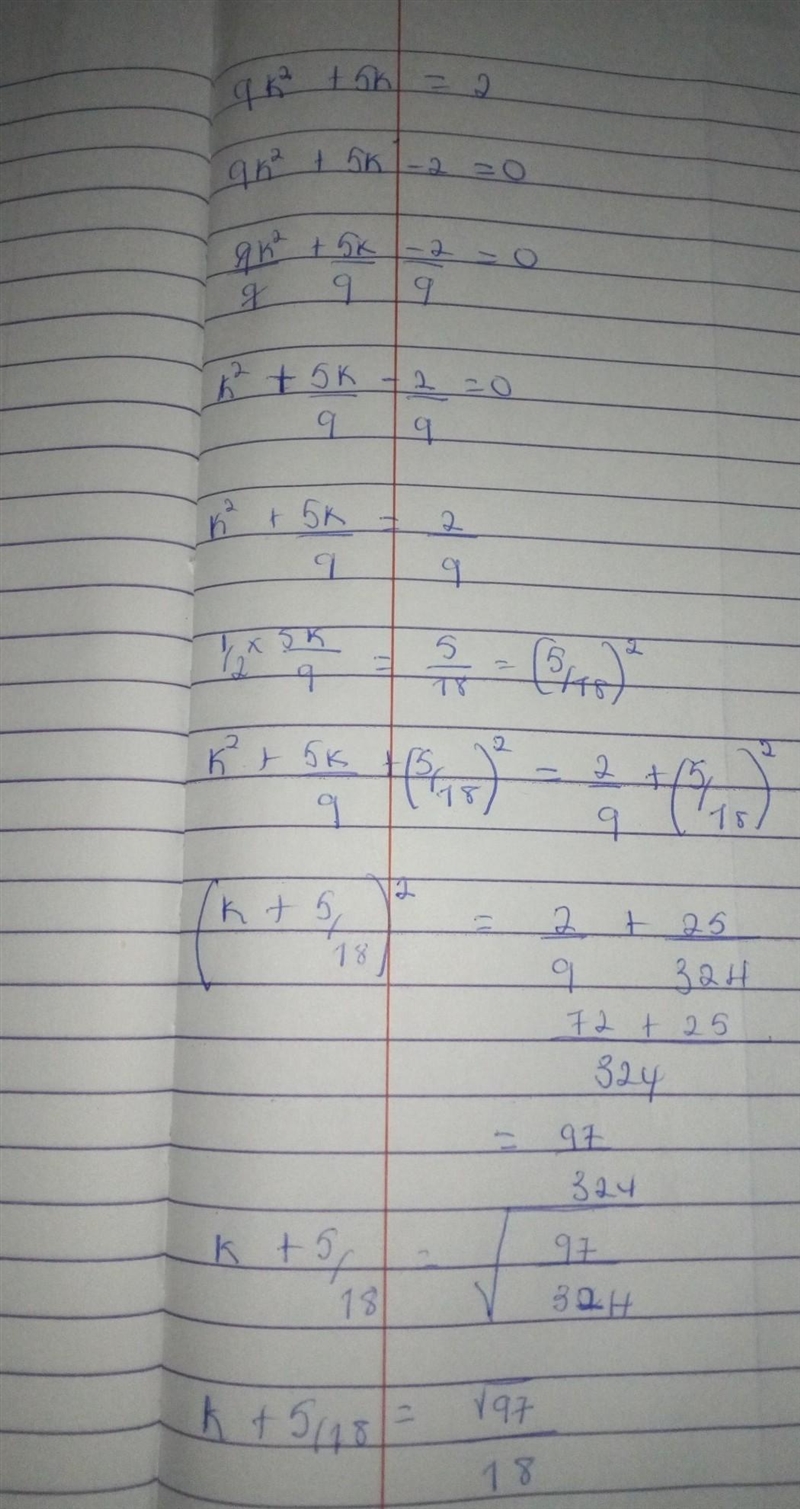 9k² + 5k = 2
9k² + 5k - 2 = 0
9k²/9 + 5k/9 - 2/9 = 0
k² + 5k/9 - 2/9 = 0
k² + 5k/9 = 2/9
1/2 × 5k/9 = 5/18 = (5/18)²
k² + 5k/9 + (5/18)² = 2/9 + (5/18)²
(k + 5/18)² = 2/9 + 25/324
72 + 25/324
= 97/324
k + 5/18 = √(97/324)
k + 5/18 = √97/18